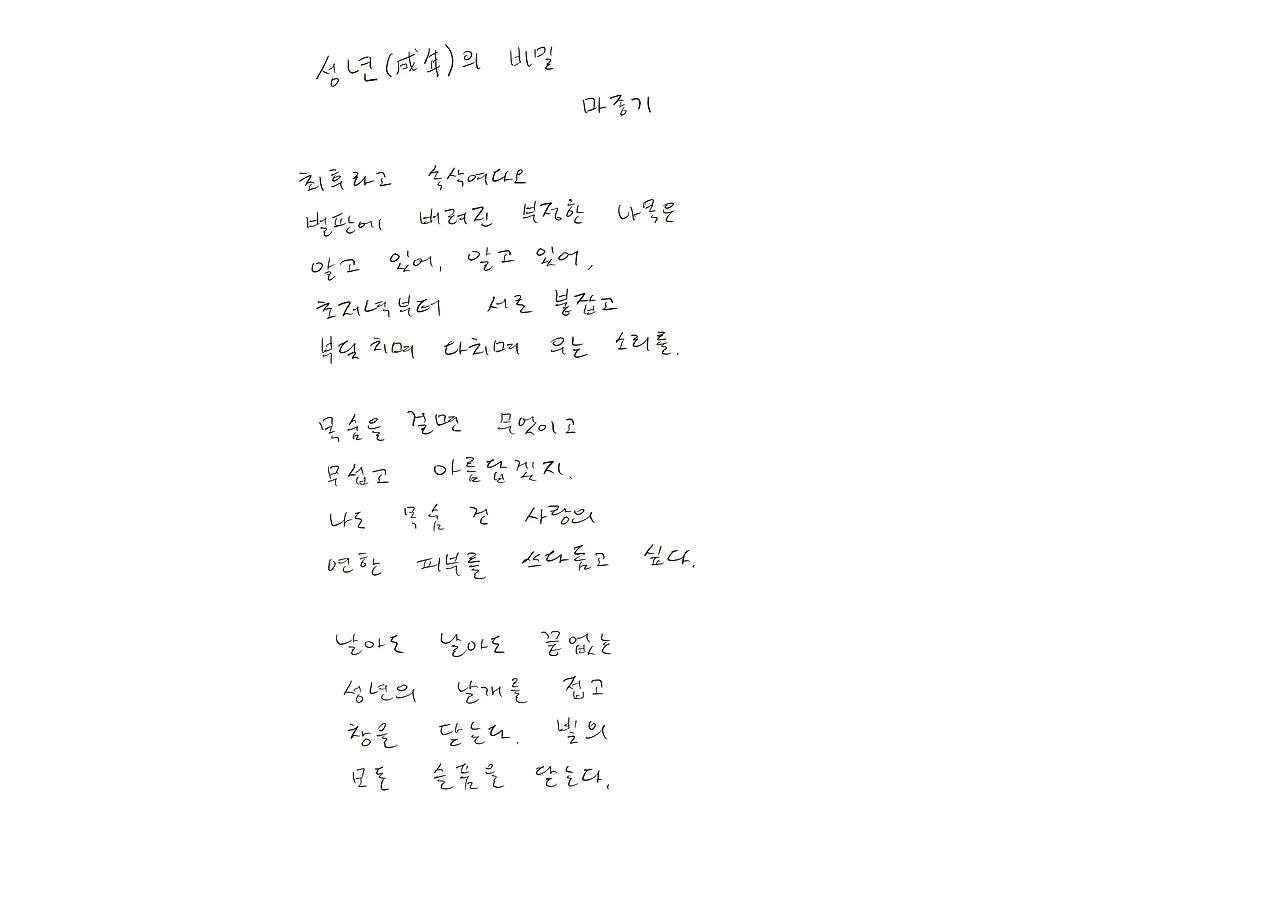 성년(成年)의 비밀
마종기
최후라고 속삭여다오
벌판에 버려진 부정한 나목은
알고 있어, 알고 있어,
초저녁부터 서로 붙잡고
부딪치며 다치며 우는 소리를.
목숨을 걸면 무엇이고
무섭고 아름답겠지.
나도 목숨 건 사랑의
연한 피부를 쓰다듬고 싶다.
날아도 날아도 끝없는
성년의 날개를 접고
창을 닫는다. 빛의
모든 슬픔을 닫는다.